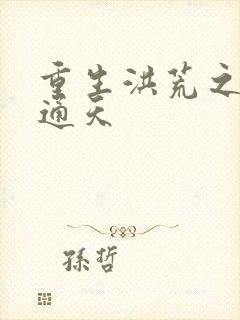 重生洪荒之
通天
孫哲